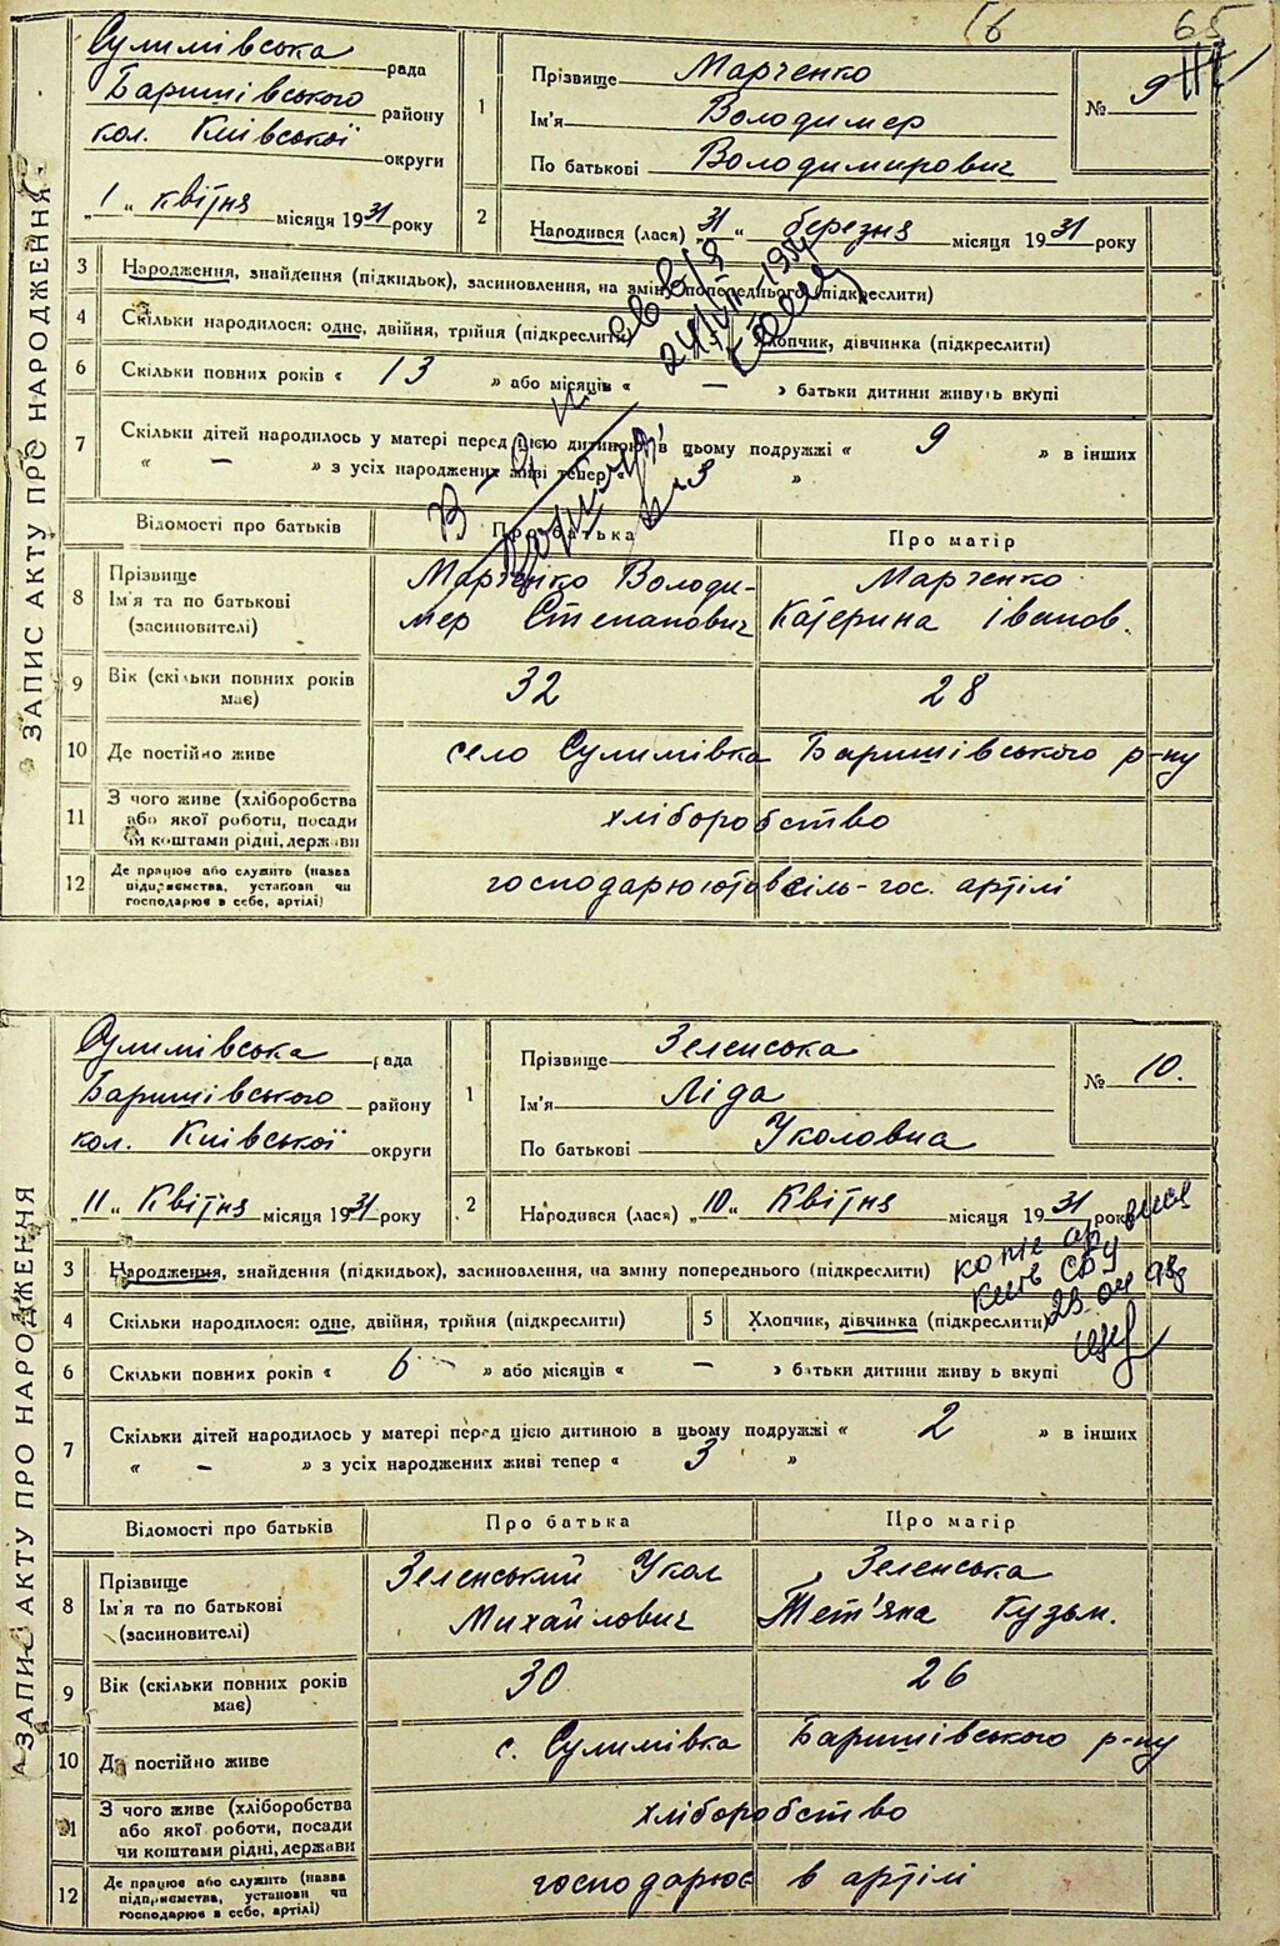 65
ЗАПИС АКТУ ПРО НАРОДЖЕННЯ
Сулимівська рада
Баришівського району
кол. Київської округи
„1“ квітня місяця 1931 року
1
Прізвище Марченко
Ім'я Володимер
По батькові Володимирович
№ 9
2
Народився (лася) „31“ березня місяця 1931 року
3 Народження, знайдення (підкидьок), засиновлення, на зміну попереднього (підкреслити)
4 Скільки народилося: одне, двійня, трійня (підкреслити) Хлопчик, дівчинка (підкреслити)
6 Скільки повних років « 13 » або місяців « — » батьки дитини живуть вкупі
7 Скільки дітей народилось у матері перед цією дитиною в цьому подружжі « 9 » в інших
« — » з усіх народжених живі тепер « 3 »
Відомості про батьків Про батька Про матір
8 Прізвище
Ім'я та по батькові
(засиновителі)
Марченко Володи-
мер Степанович
Марченко
Катерина Іванов.
9 Вік (скільки повних років має) 32 28
10 Де постійно живе село Сулимівка Баришівського р-ну
11 З чого живе (хліборобства
або якої роботи, посади
чи коштами рідні, держави
хліборобство
12 Де працює або служить (назва
підприємства, установи чи
господарює в себе, артілі)
господарюють в сіль-гос. артілі
ЗАПИС АКТУ ПРО НАРОДЖЕННЯ
Сулимівська рада
Баришівського району
кол. Київської округи
„11“ Квітня місяця 1931 року
1
Прізвище Зеленська
Ім'я Ліда
По батькові Уколовна
№ 10.
2 Народився (лася) „10“ Квітня місяця 1931 року
3 Народження, знайдення (підкидьок), засиновлення, на зміну попереднього (підкреслити)
4 Скільки народилося: одне, двійня, трійня (підкреслити) 5 Хлопчик, дівчинка (підкреслити)
6 Скільки повних років « 6 — » або місяців « — » батьки дитини живуь вкупі
7 Скільки дітей народилось у матері перед цією дитиною в цьому подружжі « 2 » в інших
« — » з усіх народжених живі тепер « 3 »
Відомості про батьків Про батька Про матір
8 Прізвище
Ім'я та по батькові
(засиновителі)
Зеленський Укол
Михайлович
Зеленська
Тет'яна Кузьм.
9 Вік (скільки повних років має) 30 26
10 Де постійно живе с. Сулимівка Баришівського р-ну
11 З чого живе (хліборобства
або якої роботи, посади
чи коштами рідні, держави
хліборобство
12 Де працює або служить (назва
підприємства, установи чи
господарює в себе, артілі)
господарює в артілі